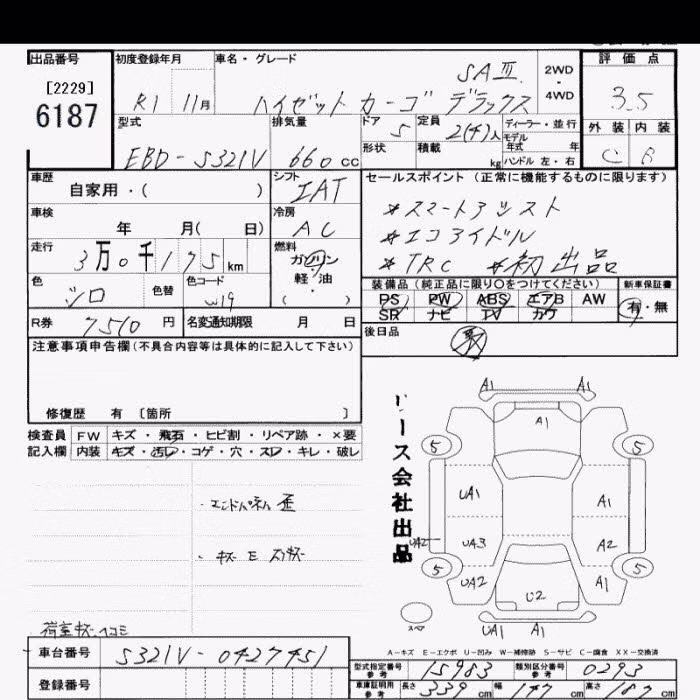 出品番号 初度登録年月 車名・グレード 評価点
[2229]
6187
R1 11月 ハイゼット カーゴ デラックス SAⅢ 2WD・4WD 3.5
型式 排気量 ドア 定員 ディーラー・並行 外装 内装
EBD-S321V 660cc 5 2(4)人 モデル年式 年 C B
形状 積載 kg ハンドル 左・右
車歴 シフト セールスポイント(正常に機能するものに限ります)
自家用・( ) IAT
車検 冷房 *スマートアシスト
年 月( 日) AC *エコアイドル
走行 燃料 *TRC *初出品
3万0千175km ガソリン・軽・油( )
色 色替 色コード 装備品(純正品に限り○をつけてください) 新車保証書
シロ W19 PS PW ABS エアB AW 有・無
SR ナビ TV カワ
R券 7510円 名変通知期限 月 日 後日品
注意事項申告欄(不具合内容等は具体的に記入して下さい)
修復歴 有 [箇所 ]
リース会社出品
検査員 FW キズ・飛石・ヒビ割・リペア跡・×要
記入欄 内装 キズ・汚レ・コゲ・穴・スレ・キレ・破レ
A1 A1
A1
5 5
UA1 A1
UA2 UA3 A2
5 5
UA2 U2 A1
スペア UA1 A1
・エンドパネル歪
・キズ E スリキズ
荷室キズ・ヘコミ
A-キズ E-エクボ U-凹み W-補修跡 S-サビ C-腐食 XX-交換済
車台番号 S321V-0427451
型式指定番号 参考 15983 類別区分番号 参考 0293
登録番号
車庫証明用 参考 長さ 339cm 幅 147cm 高さ 187cm